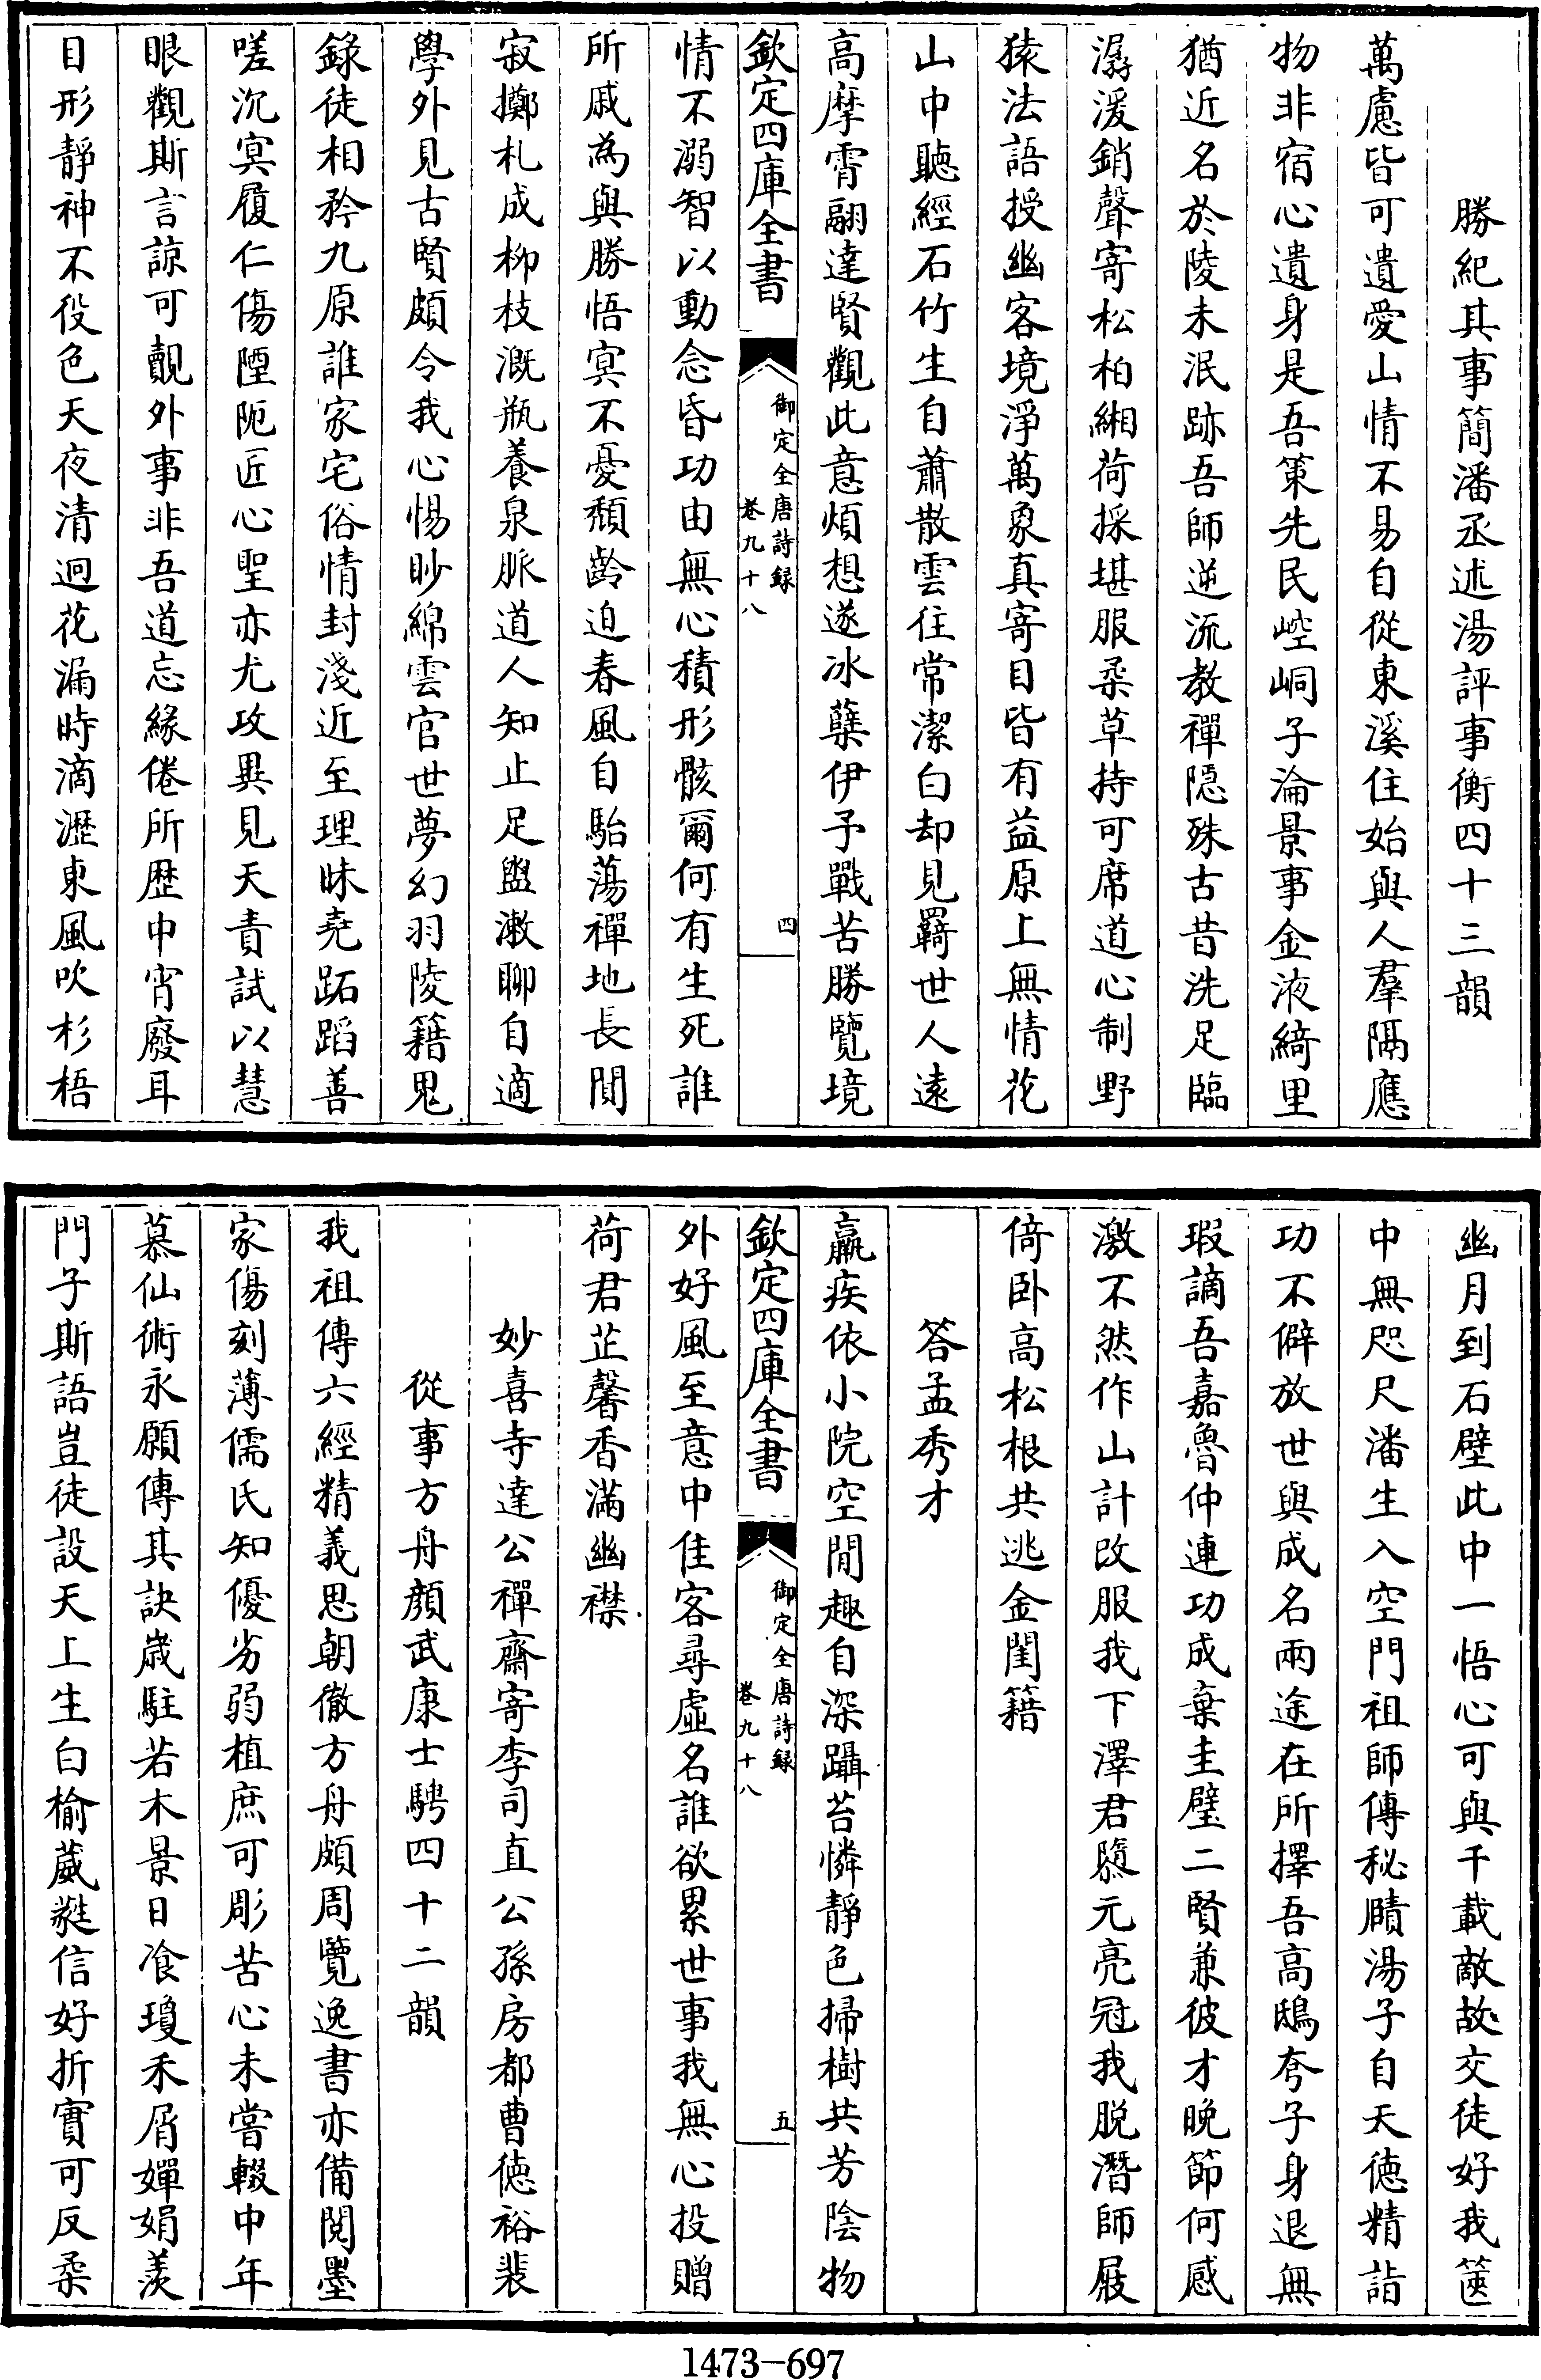 勝紀其事簡潘丞述湯評事衡四十三韻
萬慮皆可遺愛山情不易自從東溪住始與人羣隔應
物非宿心遺身是吾策先民崆峒子淪景事金液綺里
猶近名於陵未泯跡吾師逆流教禪隠殊古昔洗足臨
潺湲銷聲寄松柏緗荷採堪服柔草持可席道心制野
猿法語授幽客境淨萬象真寄目皆有益原上無情花
山中聽經石竹生自蕭散雲往常潔白却見羇世人遠
高摩霄翮達賢觀此意煩想遂冰蘖伊予戰苦勝覽境
欽定四庫全書
御定全唐詩録
卷九十八
四
情不溺智以動念昏功由無心積形骸爾何有生死誰
所戚為與勝悟冥不憂頹齡迫春風自駘蕩禪地長閒
寂擲札成柳枝溉瓶養泉脈道人知止足盥漱聊自適
學外見古賢頗令我心惕眇綿雲官世夢幻羽陵籍鬼
錄徒相矜九原誰家宅俗情封淺近至理昧堯跖蹈善
嗟沉冥履仁傷陻阨匠心聖亦尤攻異見天責試以慧
眼觀斯言諒可覿外事非吾道忘緣倦所歴中宵廢耳
目形靜神不役色天夜清迥花漏時滴瀝東風吹杉梧
幽月到石壁此中一悟心可與千載敵故交徒好我篋
中無咫尺潘生入空門祖師傳秘賾湯子自天徳精詣
功不僻放世與成名兩途在所擇吾高鴟夸子身退無
瑕謫吾嘉魯仲連功成棄圭璧二賢兼彼才晚節何感
激不然作山計改服我下澤君隳元亮冠我脱潛師屐
倚卧高松根共逃金閨籍
答孟秀才
羸疾依小院空閒趣自深躡苔憐靜色掃樹共芳陰物
欽定四庫全書
御定全唐詩録
卷九十八
五
外好風至意中佳客尋虛名誰欲累世事我無心投贈
荷君芷馨香滿幽襟
妙喜寺達公禪齋寄李司直公孫房都曹徳裕裴
從事方舟顔武康士騁四十二韻
我祖傳六經精義思朝徹方舟頗周覽逸書亦備閱墨
家傷刻薄儒氏知優劣弱植庶可彫苦心未嘗輟中年
慕仙術永願傳其訣歲駐若木景日飡瓊禾屑嬋娟羨
門子斯語豈徒設天上生白榆葳蕤信好折實可反柔
1473-697